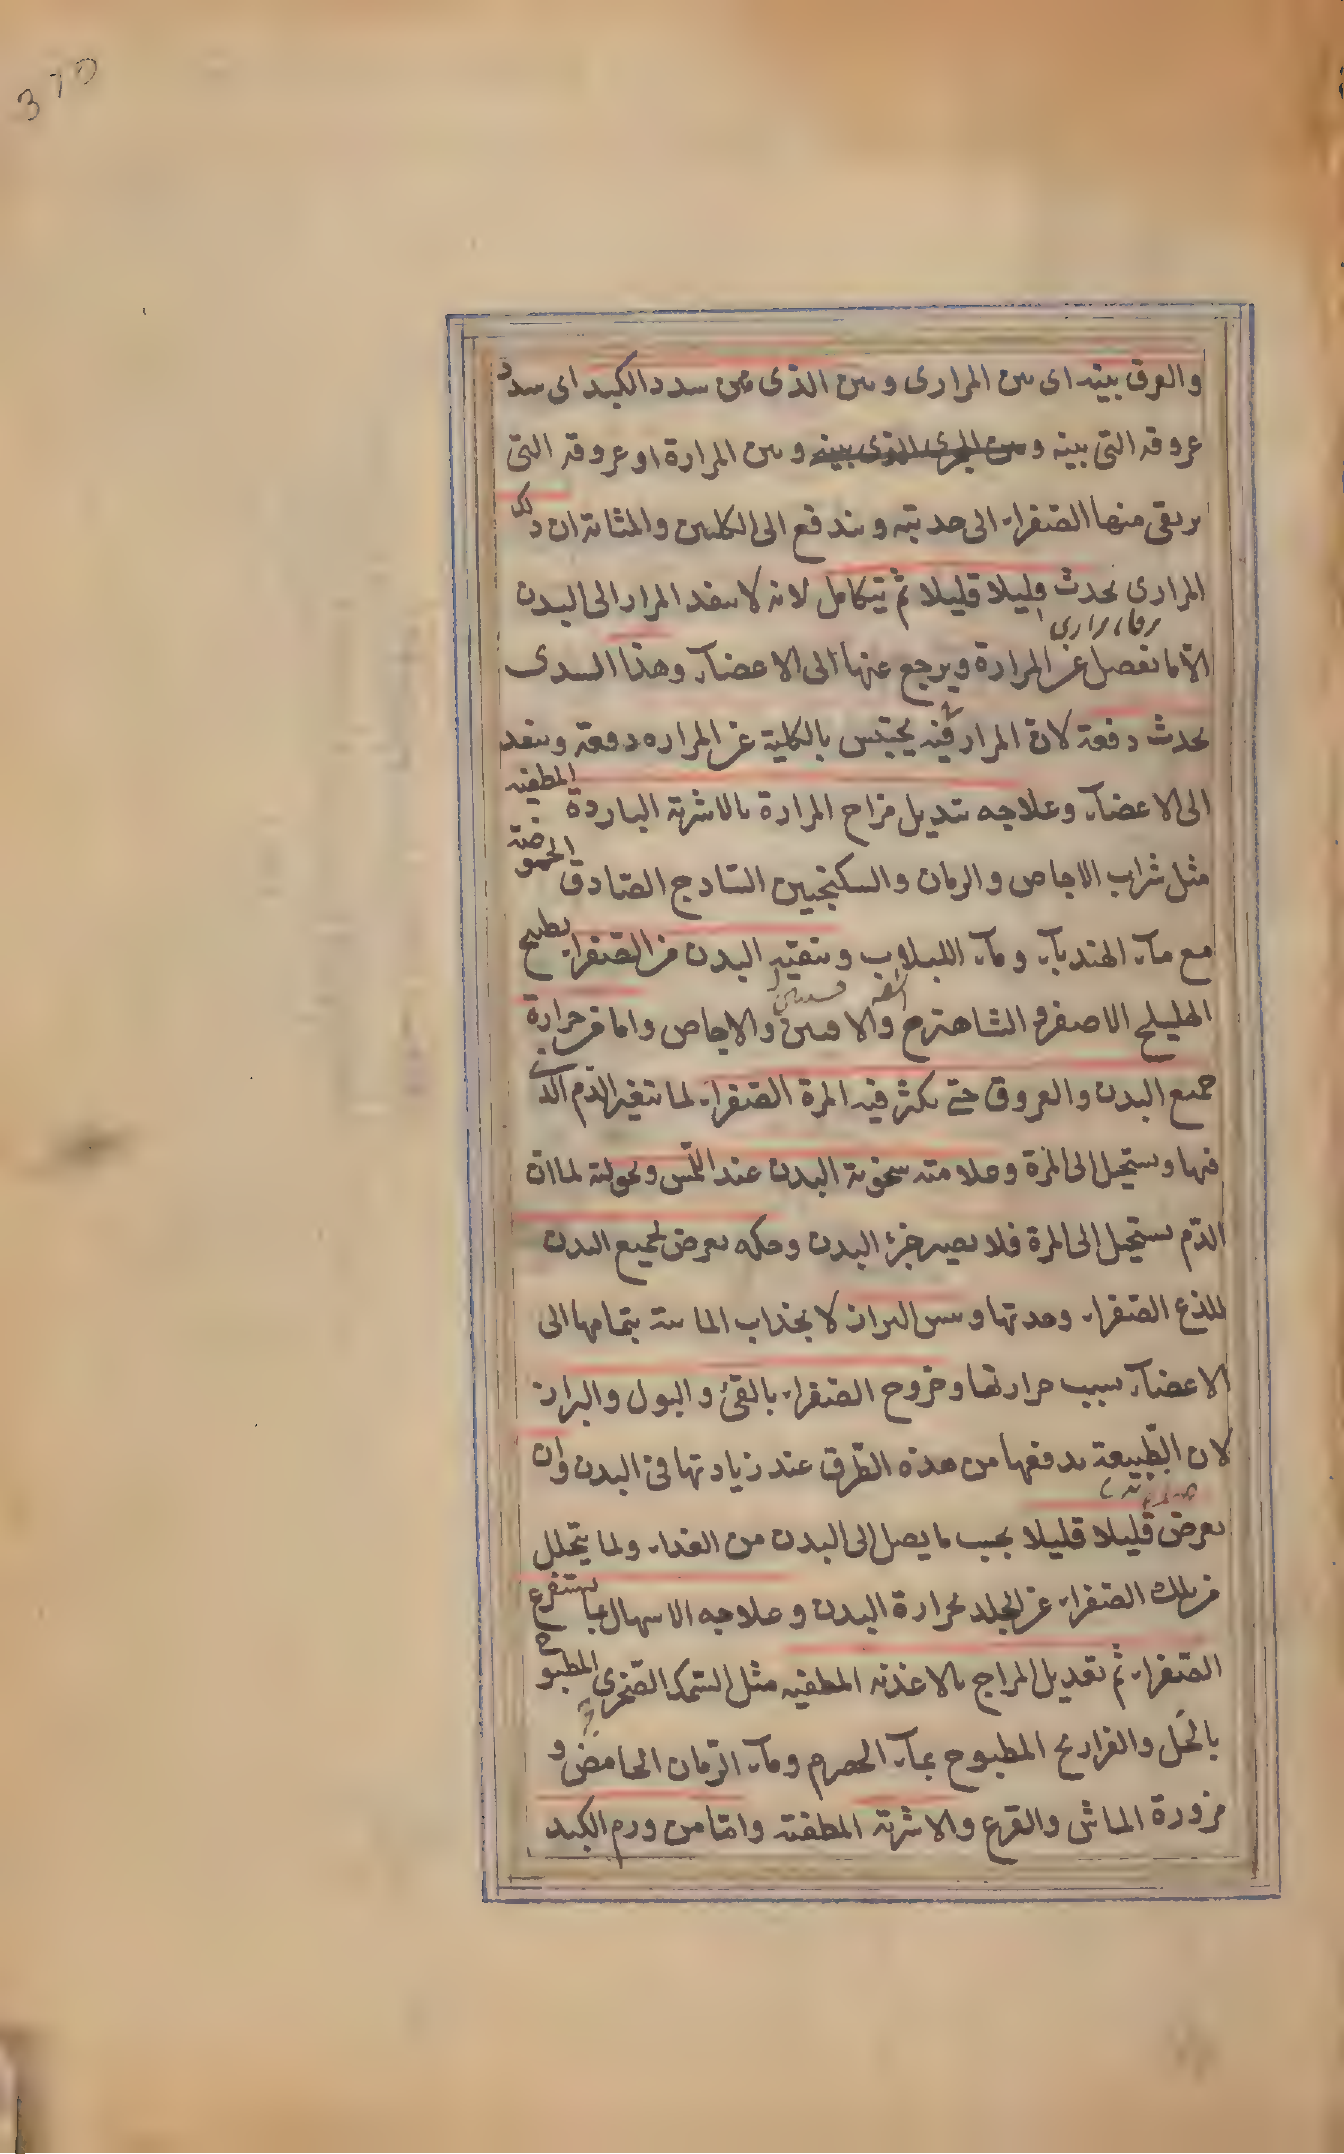 370
والفرق بينه اى بين المرارى وبين الذى من سدد الكبد اى سدد
عروقه التى بينه و وبين المرارة او عروقه التى
يرتقى منها الصفراء الى حدبته ويندفع الى الكليتين والمثانة ان ذلك
المرارى يحدث قليلا قليلا ثم يتكامل لانه لا ينفد المرار الى البدن
الا ما يفصل عن المرارة ويرجع عنها الى الاعضاء وهذا السدى
يحدث دفعة لان المرار فيه يحتبس بالكلية عن المراره دفعة وينفد
الى الاعضاء وعلاجه تبديل مزاج المرارة بالاشربة الباردة المطفيه
مثل شراب الاجاص والرمان والسكنجبين الساذج الصادق الحموضة
مع ماء الهندباء وماء اللبلاب وتنقيه البدن من الصفراء بطبيخ
الهليلج الاصفر و الشاهترج والافسنتين والاجاص واما من حرارة
جميع البدن والعروق حتى يكثر فيه المرة الصفراء لما يتغير الدم الذى
فيها ويستحيل الى المرة وعلامته سخونة البدن عند اللمس ونحولته لما ان
الدم يستحيل الى المرة فلا يصير جزء البدن وحكه يعرض لجميع البدن
للذع الصفراء وحدتها ويبس البراز لانجذاب المائية بتمامها الى
الاعضاء بسبب حرارتها وخروج الصفراء بالقئ والبول والبراز
لان الطبيعة يدفعها من هذه الطرق عند زيادتها فى البدن وان
يعرض قليلا قليلا بحسب ما يصل الى البدن من الغذاء ولما يتحلل
من تلك الصفراء عن الجلد بحرارة البدن وعلاجه الاسهال بما يستفرغ
الصفراء ثم تعديل المزاج بالاغذية المطفيه مثل السمك الصخرى المطبوخ
بالخل والفراريج المطبوخ بماء الحصرم وماء الرمان الحامض و
مزورة الماش والقرع والاشربة المطفئة واما من ورم الكبد